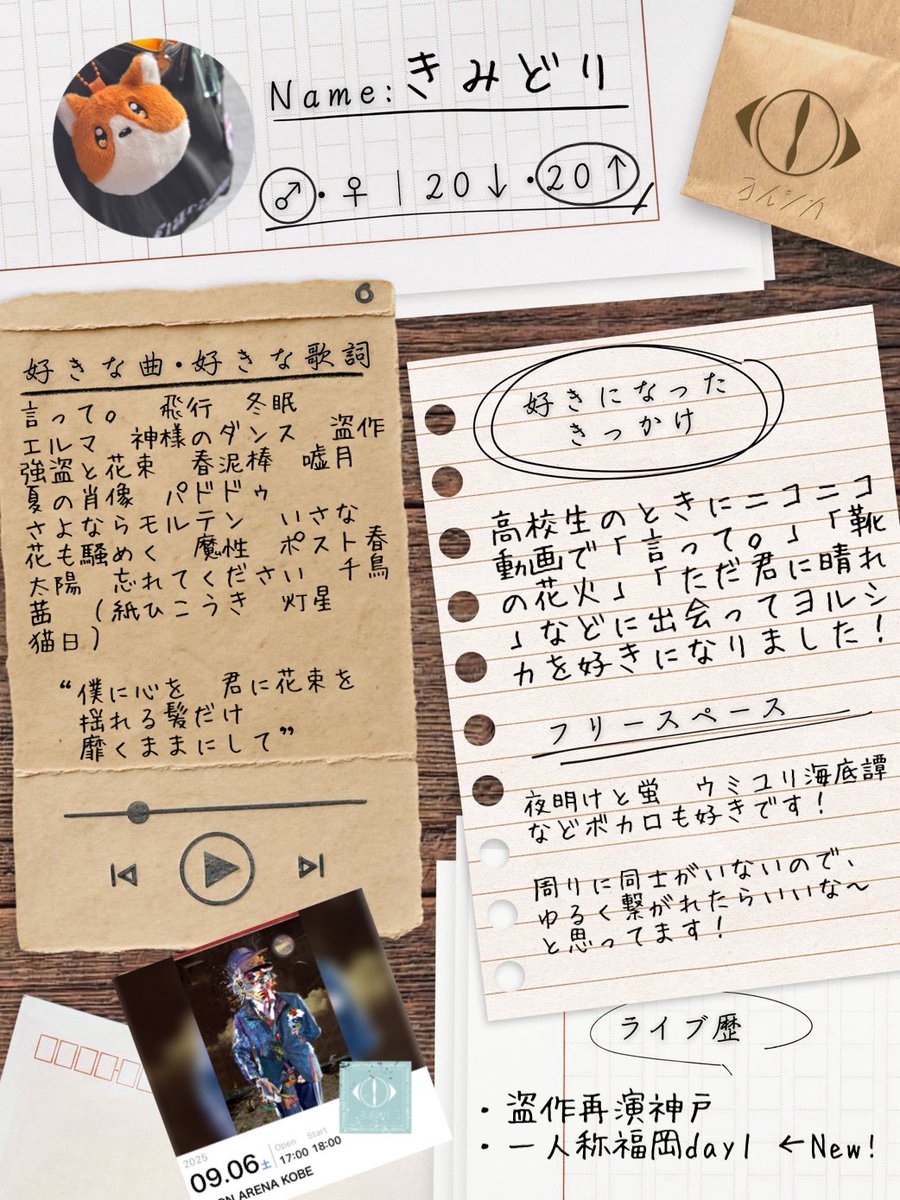 Name:きみどり
♂・♀ | 20↓・20↑
ヨルシカ
6
好きな曲・好きな歌詞
言って。 飛行 冬眠
エルマ 神様のダンス 盗作
強盗と花束 春泥棒 嘘月
夏の肖像 パドドゥ
さよならモルテン いさな
花も騒めく 魔性 ポスト春
太陽 忘れてください 千鳥
茜 (紙ひこうき 灯星
猫日)
“僕に心を 君に花束を
揺れる髪だけ
靡くままにして”
好きになった
きっかけ
高校生のときにニコニコ
動画で「言って。」「靴
の花火」「ただ君に晴れ
」などに出会ってヨルシ
カを好きになりました!
フリースペース
夜明けと蛍 ウミユリ海底譚
などボカロも好きです!
周りに同士がいないので、
ゆるく繋がれたらいいな〜
と思ってます!
2025
09.06土
Open Start
17:00 18:00
ON ARENA KOBE
ライブ歴
・盗作再演神戸
・一人称福岡day1 ←New!